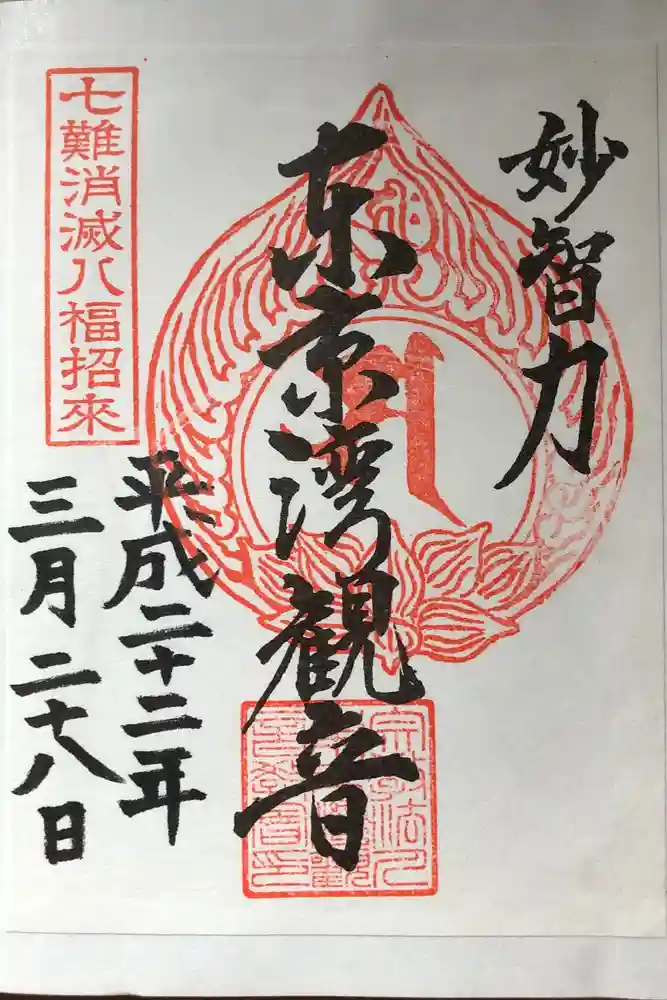 妙智力
東京湾観音
七難消滅八福招來
平成二十二年
三月二十八日